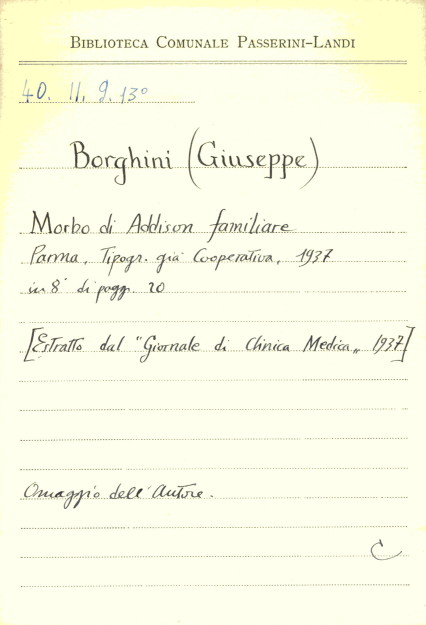 BIBLIOTECA COMUNALE PASSERINI-LANDI
40. II. 9. 13º
Borghini (Giuseppe)
Morbo di Addison familiare
Parma, Tipogr. già Cooperativa, 1937
in 8º di pagg. 20
[Estratto dal "Giornale di Clinica Medica„ 1937]
Omaggio dell'Autore.
C